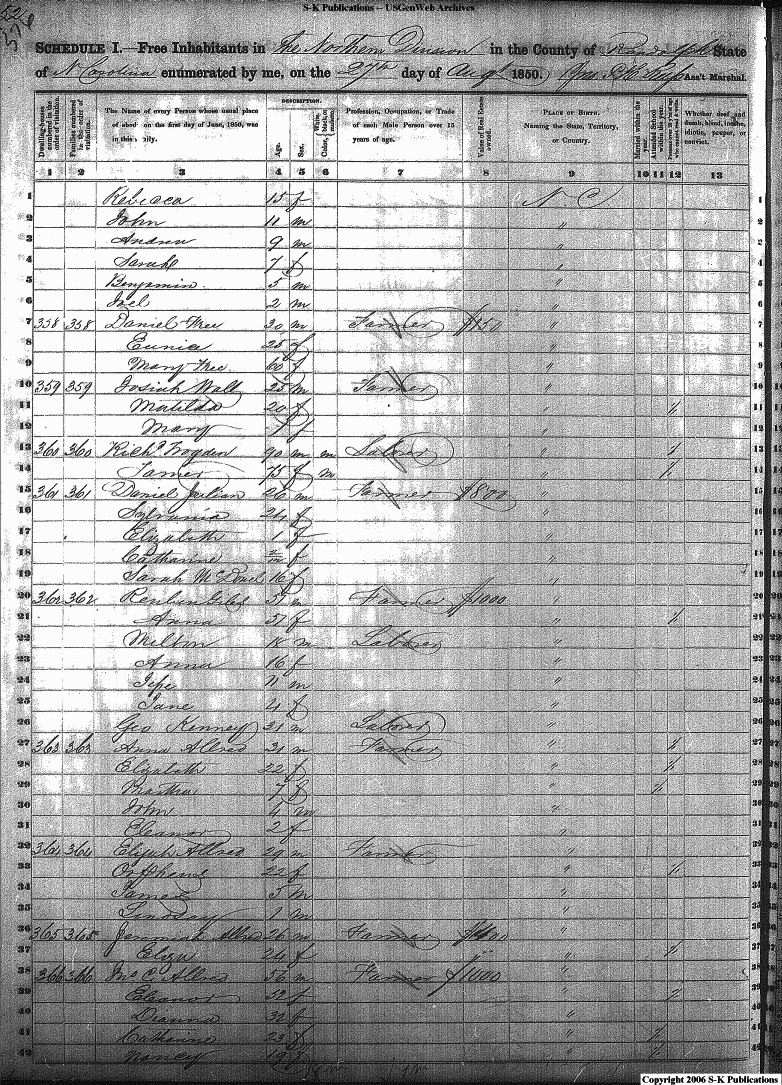 S-K Publications -- USGenWeb Archives
SCHEDULE I.—Free Inhabitants in The Northern Division in the County of Randolph State
of N Carolina enumerated by me, on the 27th day of Augt 1850. Ass't Marshal.
Dwelling-houses numbered in the order of visitation.
Families numbered in the order of visitation.
The Name of every Person whose usual place of abode on the first day of June, 1850, was in this family.
DESCRIPTION.
Age.
Sex.
White, black, or mulatto.
Color,
Profession, Occupation, or Trade of each Male Person over 15 years of age.
Value of Real Estate owned.
PLACE OF BIRTH.
Naming the State, Territory, or Country.
Married within the year.
Attended School within the year.
Whether deaf and dumb, blind, insane, idiotic, pauper, or convict.
1 2 3 4 5 6 7 8 9 10 11 12 13
1 Rebecca 15 f N C 1
2 John 11 m " 2
3 Andrew 9 m " 3
4 Sarah 7 f " 4
5 Benjamin 5 m " 5
6 Joel 2 m " 6
7 358 358 Daniel 30 m Farmer $150 " 7
8 Eunice 25 f " 8
9 Mary 60 f " 9
10 359 359 Josiah Wall 25 m Farmer " 10
11 Matilda 20 f " 11
12 Mary 1 f " 12
13 360 360 Richd Frogden 90 m m Laborer " 13
14 Tamer 75 f m " 14
15 361 361 Daniel Julian 26 m Farmer $800 " 15
16 Sylvania 24 f " 16
17 Elizabeth 1 f " 17
18 Catharine f " 18
19 Sarah 16 f " 19
20 362 362 Reuben Giles 51 m Farmer $1000 " 20
21 Anna 51 f " 21
22 Milton 18 m Laborer " 22
23 Anna 16 f " 23
24 11 m " 24
25 Jane 4 f " 25
26 Geo Kenney 21 m Laborer " 26
27 363 363 Allred 31 m Farmer " 27
28 Elizabeth 22 f " 28
29 Martha 7 f " 29
30 John 4 m " 30
31 Eleanor 2 f " 31
32 364 364 Elijah Allred 29 m Farmer " 32
33 22 f " 33
34 James 5 m " 34
35 Lindsay 1 m " 35
36 365 365 Jeremiah Allred 26 m Farmer " 36
37 Eliza 24 f " 37
38 366 366 Allred 56 m Farmer $1000 " 38
39 Eleanor 52 f " 39
40 Dianna 32 f " 40
41 Catharine 23 f " 41
42 Nancy 19 f " 42
Copyright 2006 S-K Publications